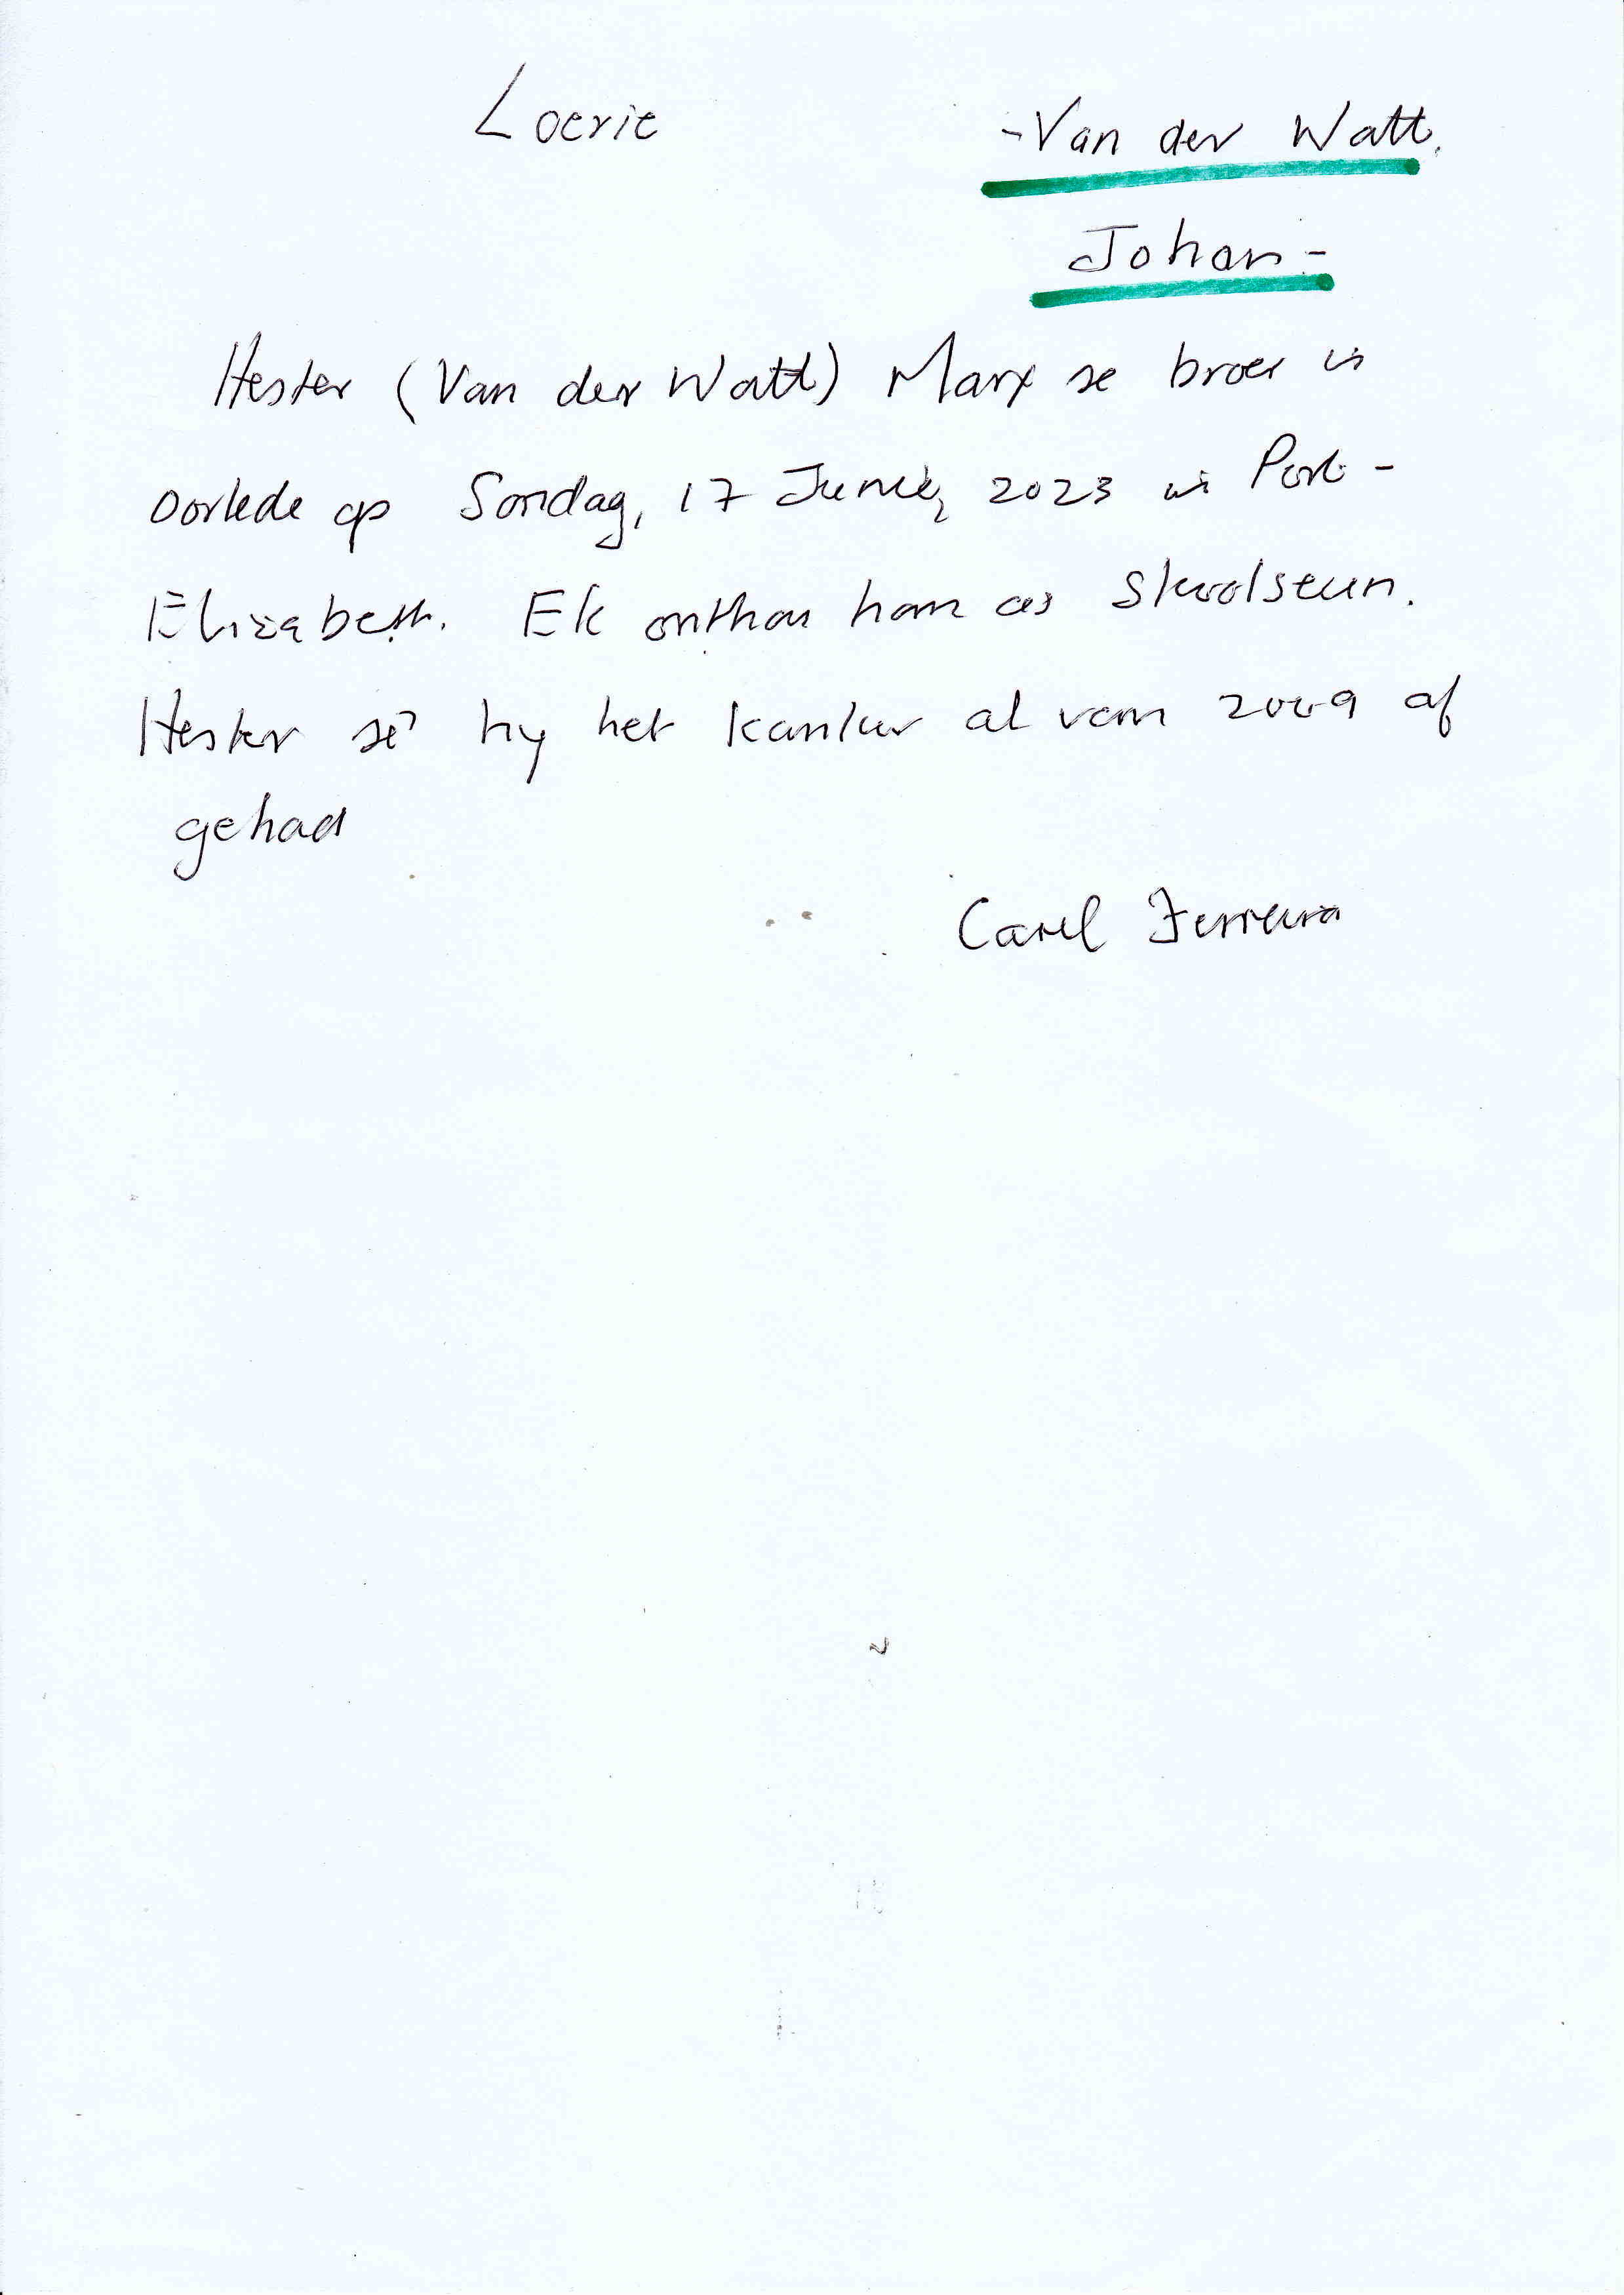 Loerie
- Van der Watt.
Johan -
Hester (Van der Watt) Marx se broer is
oorlede op Sondag, 17 Junie, 2023 in Port-
Elizabeth. Ek onthou hom as skoolseun.
Hester sê hy het kanker al van 2009 af
gehad
Carel Ferreira